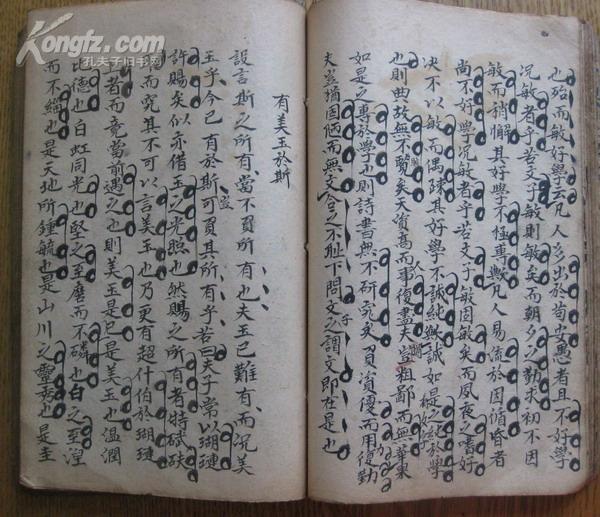 Kongfz.com
孔夫子旧书网
也殆而敏好學云凡人多出於苟安愚者且不好學
况敏者乎若文子敏則敏矣而朝夕之勤求初不因
敏而稍懈其好學不極專歟凡人易流於因循昏者
尚不好學况敏者乎若文子敏固敏矣而夙夜之嗜好
决不以敏而偶踈其好學不誠純歟誠如是之純於學
也則典故無不覽矣天資高而事復盡夫豈粗鄙而無華東
如是之專於學也則詩書無不研究矣資優而用復勤
夫豈猶固陋而無文合之不耻下問文之謂文即在是也
有美玉於斯
設言斯之所有當不同所有也夫玉已難有而况美
玉乎今已有於斯可負其所有乎若曰夫子常以瑚璉
許賜矣似亦借玉之光照也然賜之所有者特碔砆
而究其不可以言美玉也乃更有超什伯於瑚璉
者而竟當前遇之也則美玉是已是美玉也溫潤
比德也白虹同光也堅之至磨而不磷也白之至涅
而不緇也是天地所鍾毓也是山川之靈秀也是圭